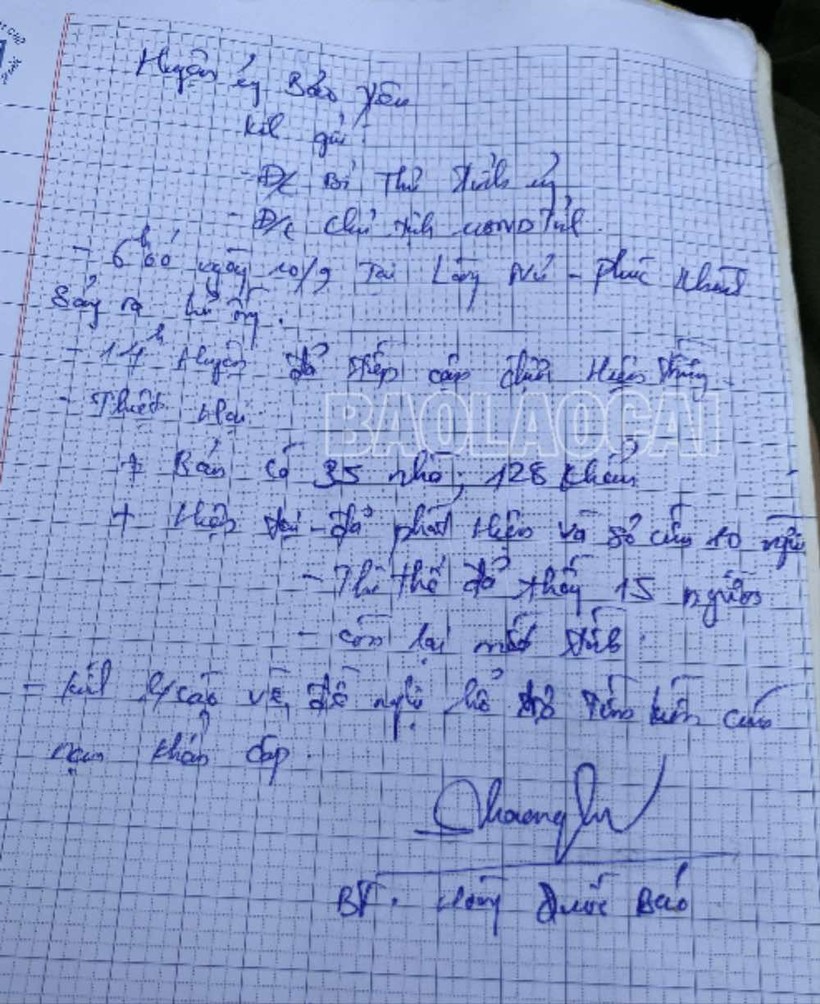 Huyện ủy Bảo Yên
Kính gửi:
- Đ/c Bí Thư Tỉnh ủy
- Đ/c Chủ tịch UBND Tỉnh.
- 6h00 ngày 10/9 Tại Làng Nủ - Phúc Khánh
Sảy ra lũ ống.
- 14h Huyện đã tiếp cận được Hiện trường
- Thiệt Hại:
BAOLAOCAI
+ Bản có 35 nhà; 128 khẩu
+ Hiện tại - đã phát Hiện và sơ cứu 10 người
- Thi thể đã thấy 15 người
- còn lại mất tích.
- Kính b/cáo và đề nghị hỗ trợ tìm kiếm cứu
nạn khẩn cấp.
BT. Hoàng Quốc Bảo